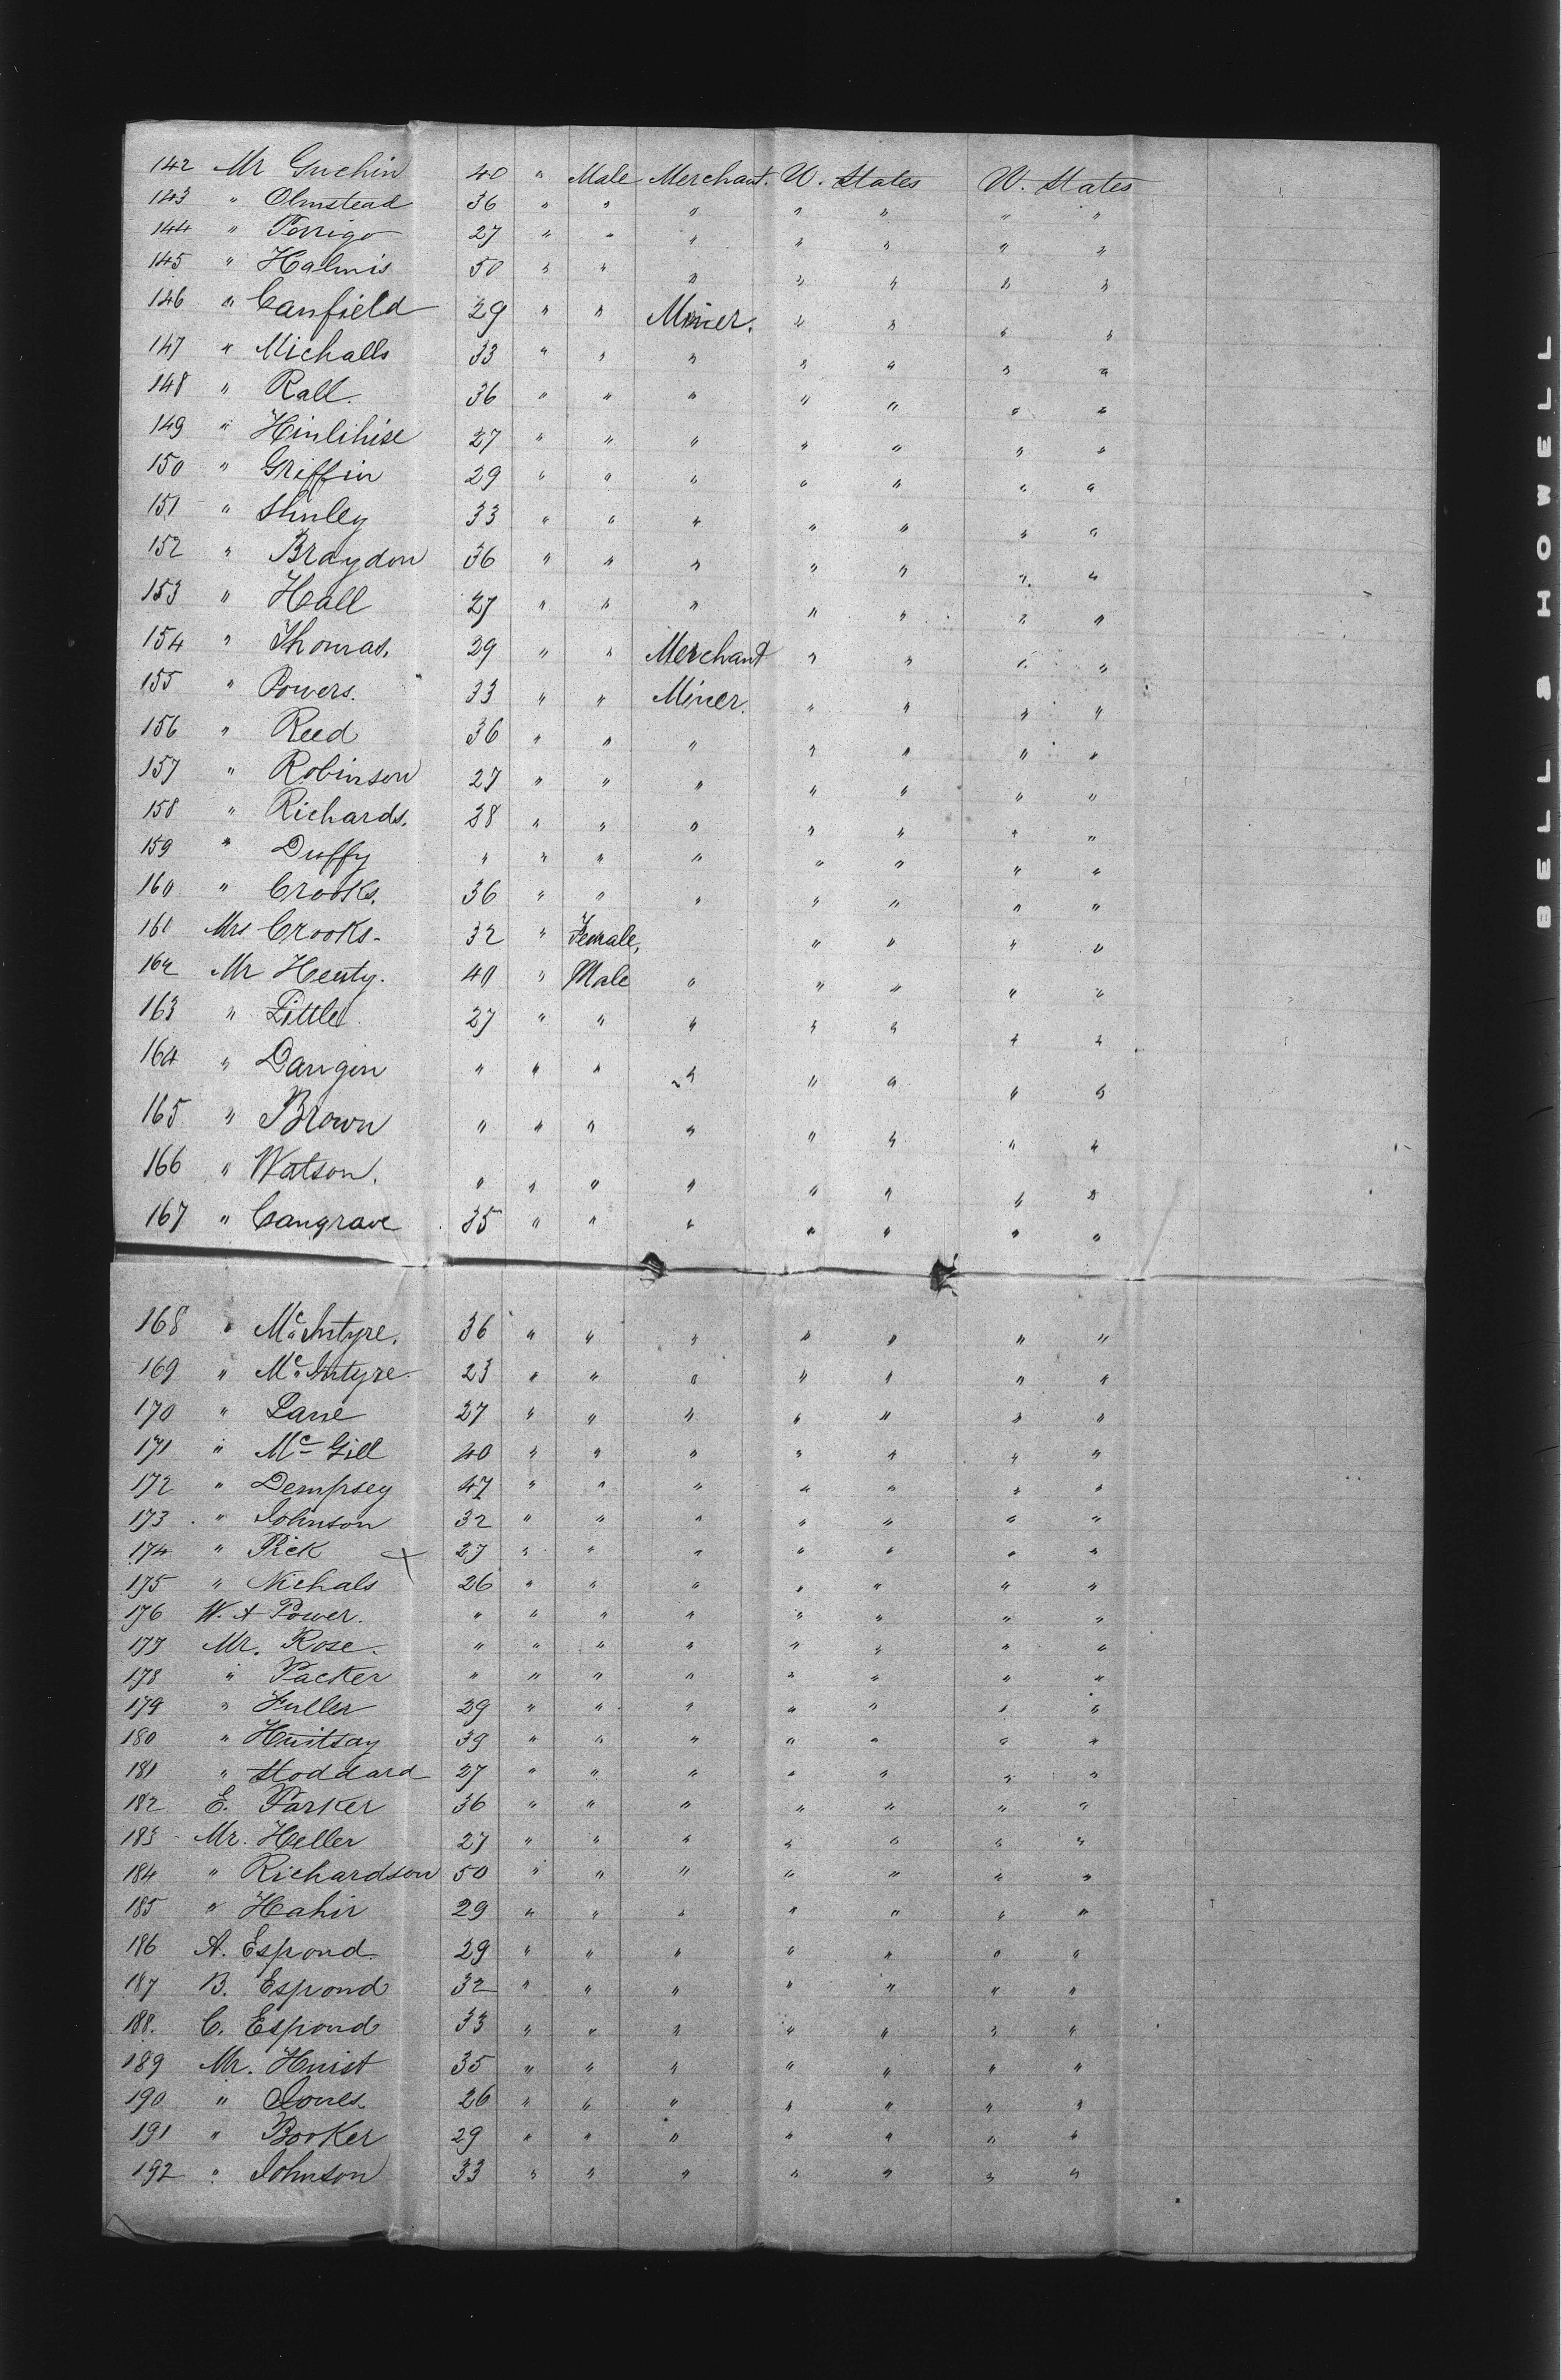 142 Mr Guchin 40 " Male Merchant. U. States U. States
143 " Olmstead 36 " " " " " " "
144 " Perrigo 27 " " " " " " "
145 " Halmis 50 " " " " " " "
146 " Canfield 29 " " Miner. " " " "
147 " Michalls 33 " " " " " " "
148 " Rall. 36 " " " " " " "
149 " Hinlihise 27 " " " " " " "
150 " Griffin 29 " " " " " " "
151 " Shuley 33 " " " " " " "
152 " Braydon 36 " " " " " " "
153 " Hall 27 " " " " " " "
154 " Thomas. 29 " " Merchant " " " "
155 " Powers. 33 " " Miner. " " " "
156 " Reed 36 " " " " " " "
157 " Robinson 27 " " " " " " "
158 " Richards. 28 " " " " " " "
159 " Duffy " " " " " " " "
160 " Crooks. 36 " " " " " " "
161 Mrs Crooks. 32 " Female, " " " "
162 Mr Heuty. 40 " Male " " " " "
163 " Little 27 " " " " " " "
164 " Dangin " " " " " " " "
165 " Brown " " " " " " " "
166 " Watson. " " " " " " " "
167 " Cangrave 35 " " " " " " "
168 " McIntyre. 36 " " " " " " "
169 " McIntyre. 23 " " " " " " "
170 " Lane 27 " " " " " " "
171 " McGill 40 " " " " " " "
172 " Dempsey 47 " " " " " " "
173 " Johnson 32 " " " " " " "
174 " Pick x 27 " " " " " " "
175 " Nichals 26 " " " " " " "
176 W. A Power. " " " " " " " "
177 Mr. Rose. " " " " " " " "
178 " Packer " " " " " " " "
179 " Fuller 29 " " " " " " "
180 " Huitsay 39 " " " " " " "
181 " Stoddard 27 " " " " " " "
182 E. Parker 36 " " " " " " "
183 Mr. Heller 27 " " " " " " "
184 " Richardson 50 " " " " " " "
185 " Hahir 29 " " " " " " "
186 A. Espond 29 " " " " " " "
187 B. Espond 32 " " " " " " "
188. C. Espond 33 " " " " " " "
189 Mr. Huist 35 " " " " " " "
190 " Jones. 26 " " " " " " "
191 " Booker 29 " " " " " " "
192 " Johnson 33 " " " " " " "
BELL & HOWELL